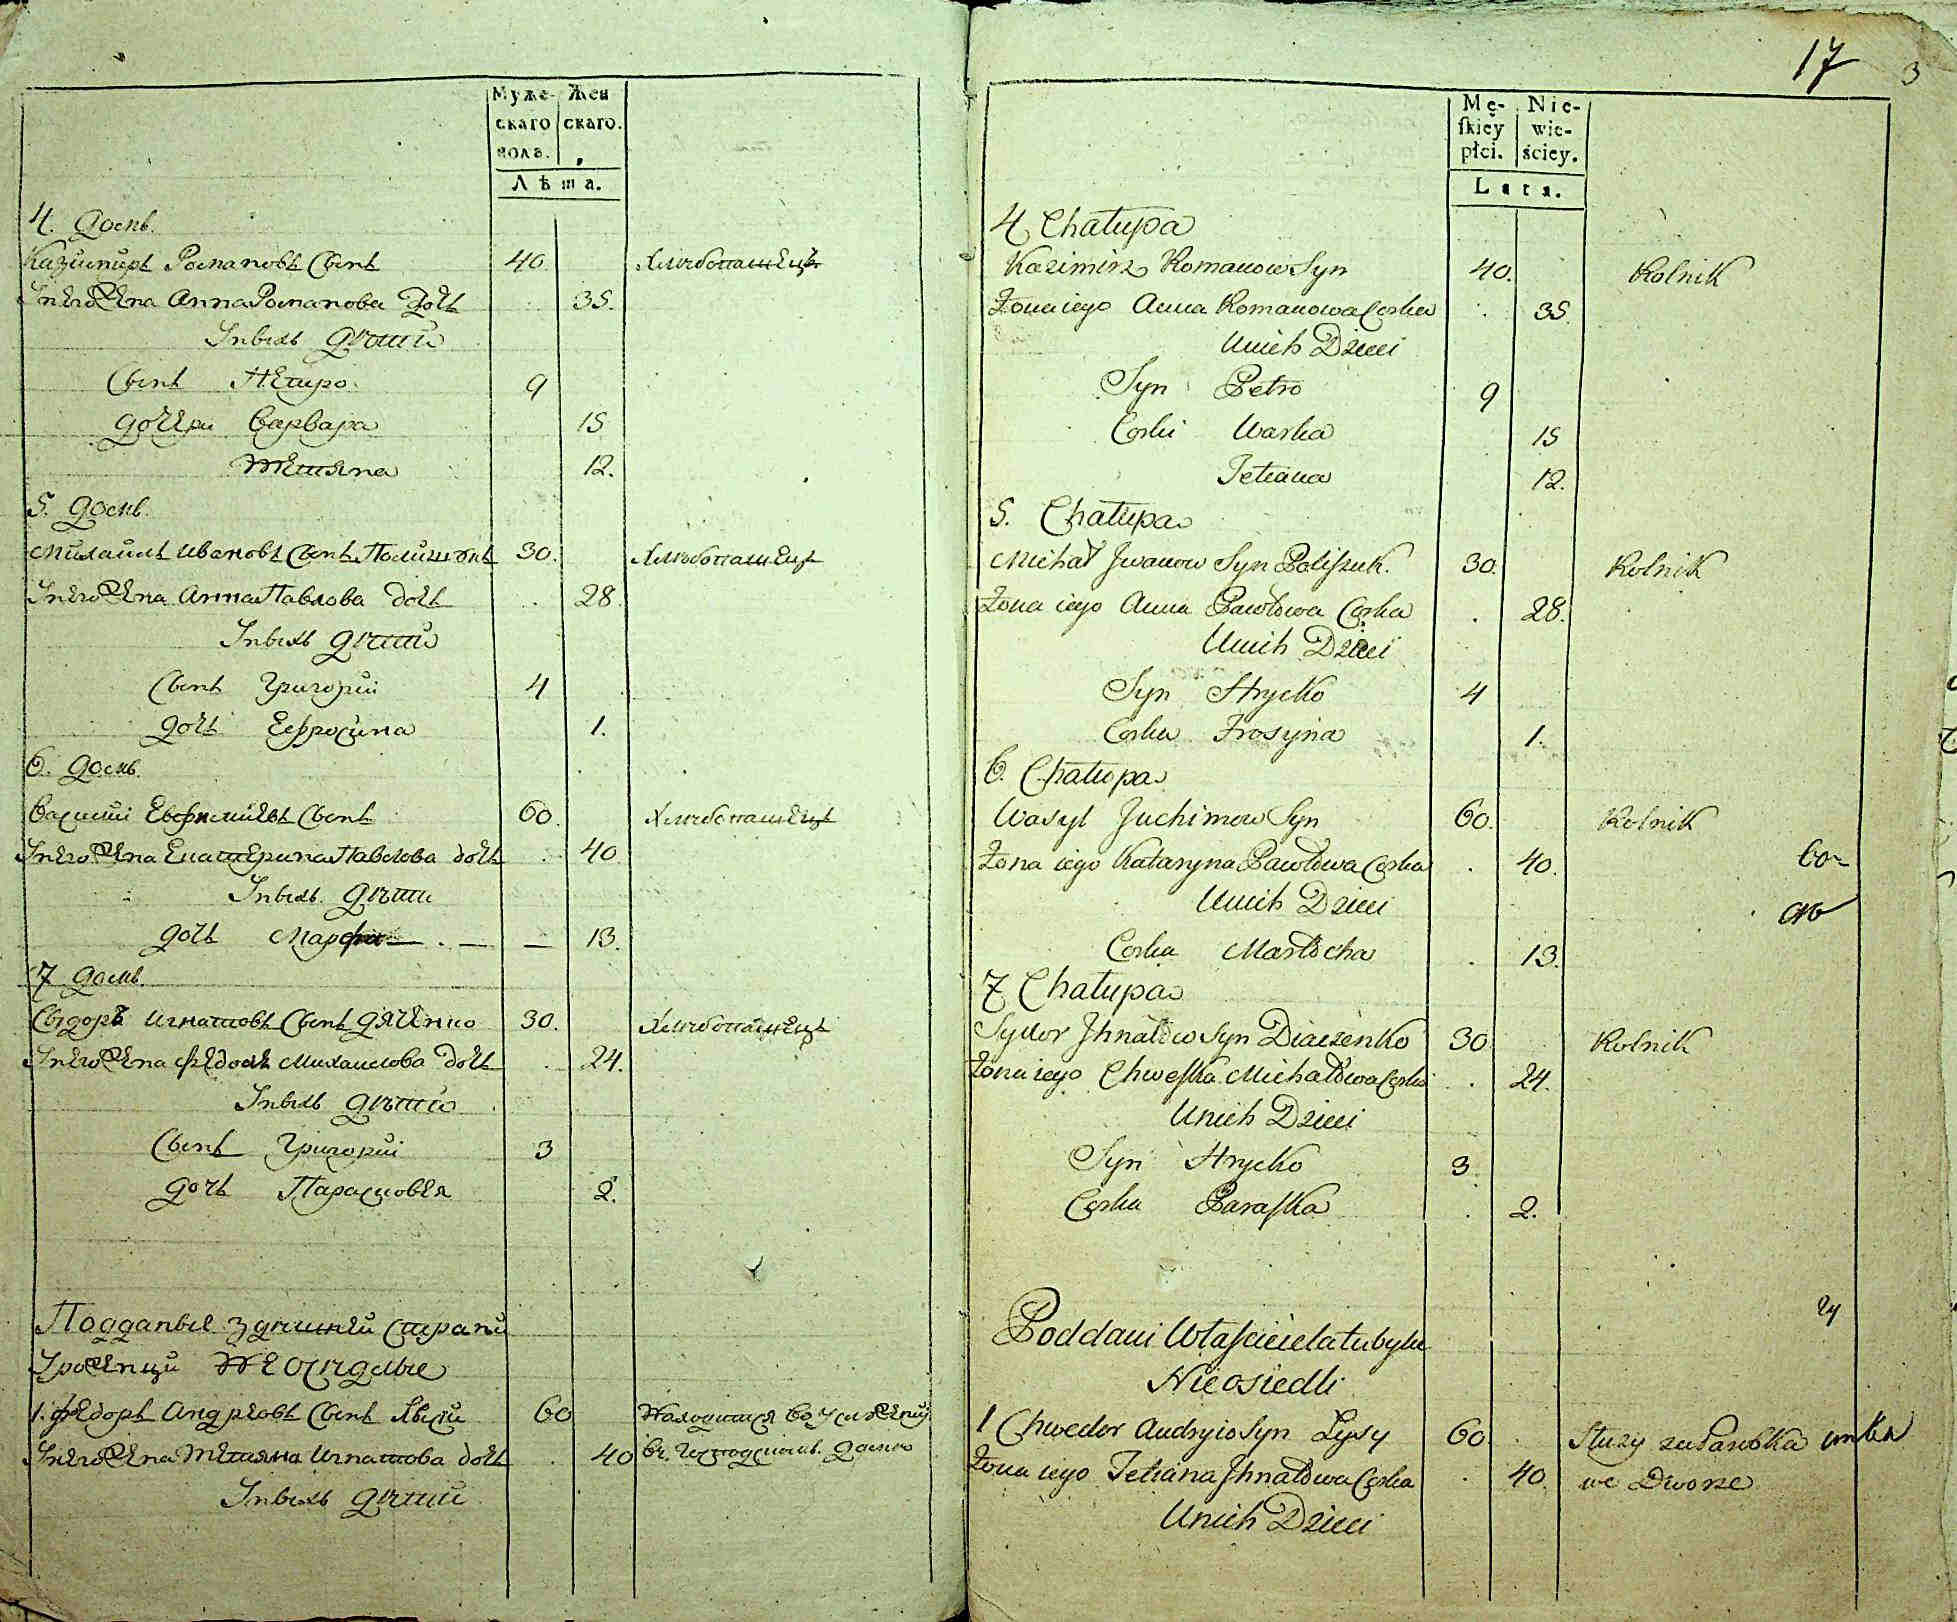 Муже- Жен
скаго скаго.
пола.
Лѣта.
4. домъ.
Казимиръ Романовъ Сынъ 40 Хлѣбопашецъ
Его Жена Анна Романова Дочь 35.
У нихъ дѣти
Сынъ Петро. 9
дочери Варвара 15
Тетяна 12.
5. домъ.
Михаилъ Ивановъ Сынъ Полищукъ 30. Хлѣбопашецъ
Его Жена Анна Павлова дочь 28
У нихъ дѣти
Сынъ Григорій 4
дочь Ефросина 1.
6. домъ.
Василій Евфиміевъ Сынъ 60. Хлѣбопашецъ
Его Жена Екатерина Павлова дочь 40
У нихъ дѣти
дочь Марфа 13.
7 домъ.
Сыдоръ Игнатовъ Сынъ Дяченко 30. Хлѣбопашецъ
Его Жена Михаилова дочь 24.
У нихъ дѣти
Сынъ Григорій 3
дочь Парасковья 2.
Подданые здѣшней страни
Уроженци Не осѣдлые
1. Федоръ Андреевъ Сынъ Лысый 60 Находится во услуженіи
Его Жена Тетяна Игнатова дочь 40 въ Господскомъ домѣ
У нихъ дѣти
17 3
Mę- Nie-
skiey wie-
płci. ściey.
Lata.
4 Chałupa
Kazimirz Romanow Syn 40. Rolnik
Żona iego Anna Romanowa Corka 35
U nich Dzieci
Syn Petro 9
Corki Warka 15
Tetiana 12.
5. Chałupa
Michał Jwanow Syn Poliszuk. 30. Rolnik
Żona iego Anna Pawłowa Corka 28.
U nich Dzieci
Syn Hrycko 4
Corka Frosyna 1.
6. Chałupa
Wasyl Juchimow Syn 60. Rolnik
Żona iego Kataryna Pawłowa Corka 40.
U nich Dzieci
Corka Martocha 13.
7 Chałupa
Sydor Jhnatow Syn Diaczenko 30 Rolnik
Żona iego Chweska Michałowa Corka 24.
U nich Dzieci
Syn Hrycko 3.
Corka Paraska 2.
Poddani Własciciela tubylce
Nieosiedli
1 Chwedor Andryio Syn Łysy 60. Służy za Parobka
Żona iego Tetiana Jhnatowa Corka 40. we Dworze
U nich Dzieci